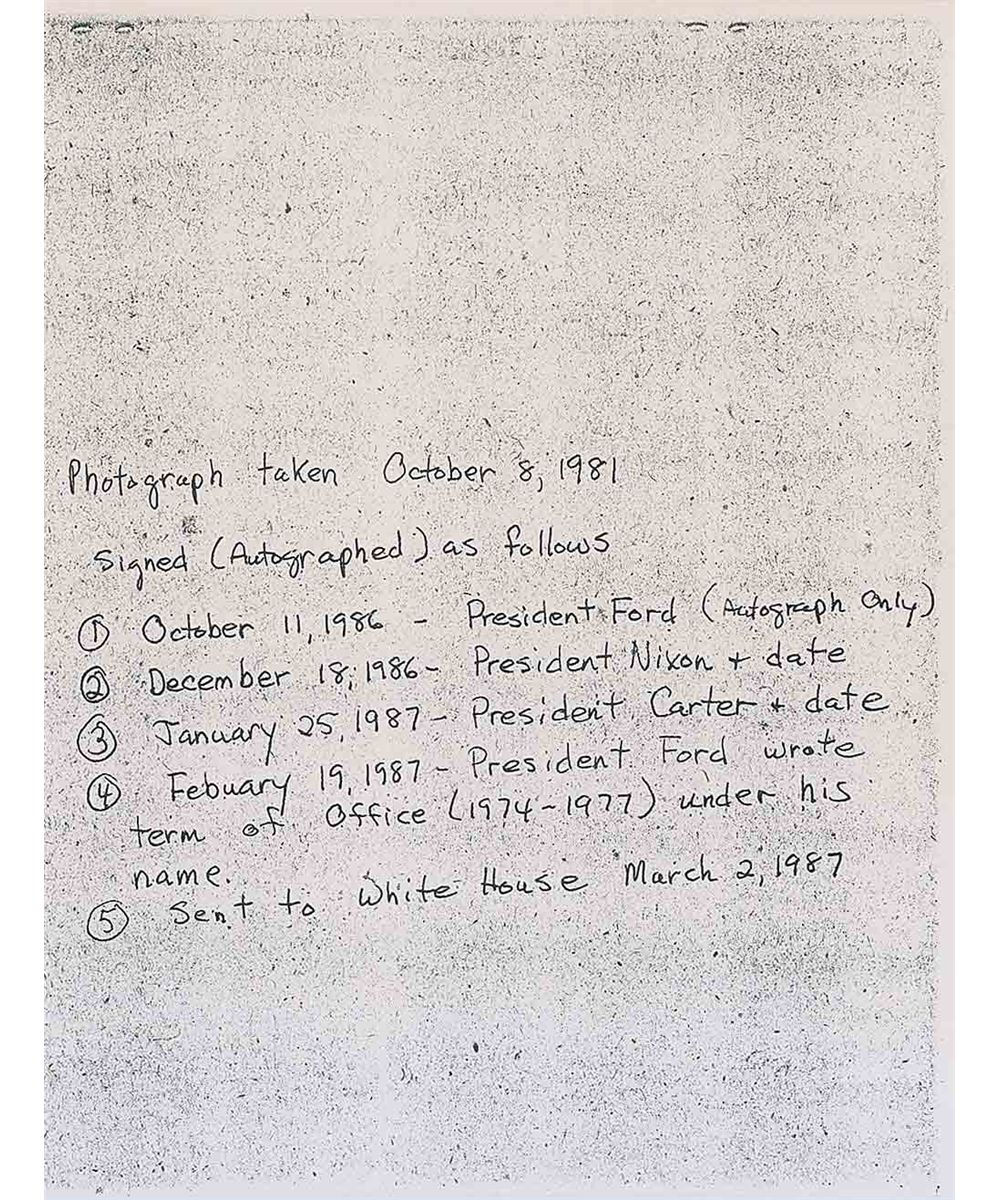 Photograph taken October 8, 1981
Signed (Autographed) as follows
① October 11, 1986 - President Ford (Autograph Only)
② December 18, 1986 - President Nixon + date
③ January 25, 1987 - President Carter + date
④ Febuary 19, 1987 - President Ford wrote
term of Office (1974-1977) under his
name.
⑤ Sent to White House March 2, 1987